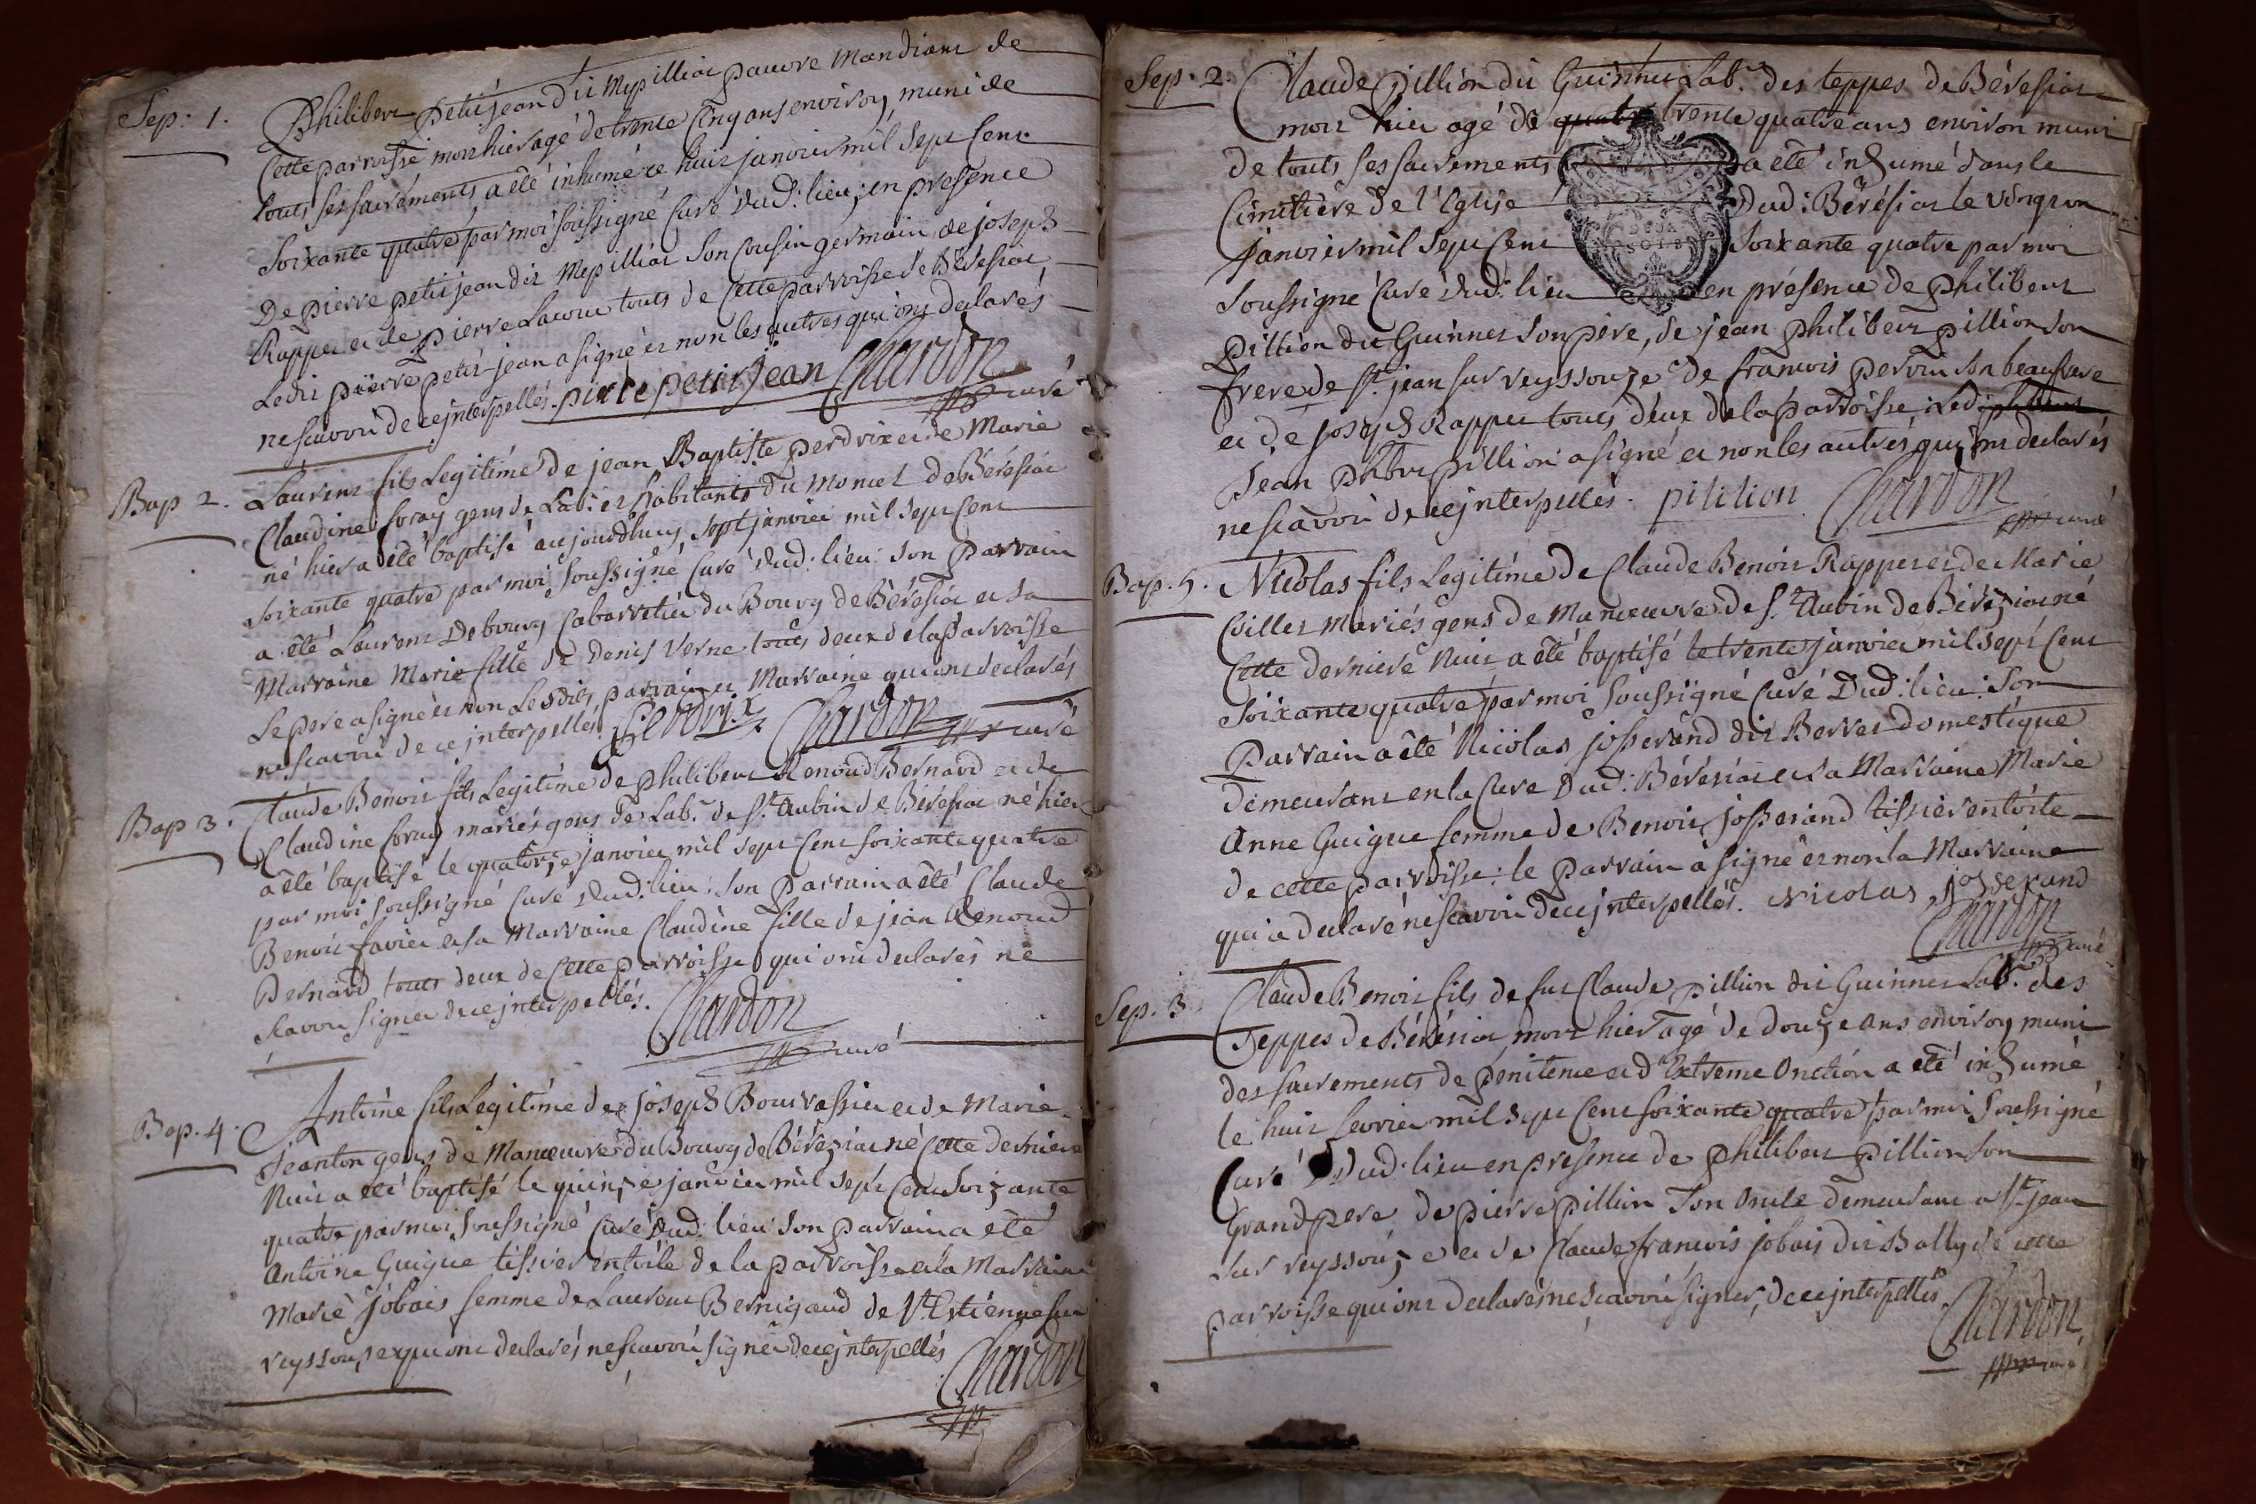 Sep: 1. Philibert petitjean dit Mépilliat pauvre mandiant de
Cette parroisse mort hier agé de trente Cinq ans environ, muni de
touts ses sacréments a été inhumé ce huit janvier mil sept Cent
soixante quatre par moi soussigné Curé dud: lieu, en presence
De pierre petitjean dit Mepilliat son Cousin germain, de joseph
Rapper et de pierre Lacour touts de Cette parroisse de Béresiat,
Ledit pierre petit-jean a signé et non les autres qui ont declarés
ne scavoir de ce interpellés. pierre petitjean Chardon
curé
Bap 2. Laurent fils Legitime de jean Baptiste perdrix et de Marie
Claudine foray gens de Lab: et habitants du Moncet de Bérésiat
né hier a été baptisé aujourdhuy sept janvier mil sept Cent
soixante quatre par moi soussigné Curé dud: lieu: son parrain
a été Laurent Debourg Cabarretier du Bourg de Bérésiat et sa
Marraine Marie fille de Denis Verne touts deux de la parroisse
Le pere a signé et non Lesdits parrain et Marraine qui ont declarés
ne scavoir de ce interpellés. Perdrix Chardon
curé
Bap 3. Claude Benoit fils Legitime de philibert Renoud Bernard et de
Claudine foray mariés gens de Lab.r de St. Aubin de Béresiat né hier
a été baptisé le quatorze janvier mil sept Cent soixante quatre
par moi soussigné Curé dud: lieu: son parrain a été Claude
Benoit favier et sa Marraine Claudine fille de jean Renoud
Bernard touts deux de Cette parroisse qui ont declarés ne
scavoir signer de ce interpellés. Chardon
curé
Bap. 4. Antoine fils Légitime de joseph Bourrassier et de Marie
Jeanton gens de Manœuvre du Bourg de Béréziat né Cette derniere
Nuit a été baptisé le quinze janvier mil sept Cent soizante
quatre par moi soussigné Curé dud: lieu son parrain a été
Antoine Guigue tissier en toile de la parroisse et la Marraine
Marie jobais femme de Laurent Bernigaud de St. Estienne sur
reyssouze qui ont declarés ne scavoir signer de ce interpellés
Chardon
Sep. 2. Claude pillion dit Guinnet Lab.r des teppes de Béresiat
mort hier agé de quatr trente quatre ans environ muni
de touts ses sacrements a été inhumé dans le
Cimetière de l'Eglise dud: Bérésiat le vingt un
janvier mil sept Cent soixante quatre par moi
soussigné Curé dud: lieu en présence de philibert
pillion dit Guinnet son père, de jean philibert pillion son
frere de St. jean sur reyssouze de francois perrin son beaufrere
et de joseph Rapper touts deux de la parroisse: Ledit
Jean phibert pillion a signé et non les autres qui ont declarés
ne scavoir de ce interpellés. pillion Chardon
curé
Bap. 5. Nicolas fils Legitime de Claude Benoit Rapper et de Marie
Coillet mariés gens de Manœuvre de St. Aubin de Béréziat né
Cette derniere Nuit a été baptisé le trente janvier mil sept Cent
soixante quatre par moi soussigné Curé Dud: lieu: son
parrain a été Nicolas josserand dit Berret domestique
demeurant en la Cure Dud: Bérésiat et sa Marraine Marie
Anne Guigue femme de Benoit josserand tissier en toile
de cette parroisse: le parrain a signé et non la Marraine
qui a declaré ne scavoir de ce interpellés. Nicolas josserand
Chardon
curé
Sep. 3. Claude Benoit fils de fut Claude pillion dit Guinnet Lab.r des
Teppes de Bérésiat mort hier agé de douze ans environ muni
des sacrements de penitence et d'Extreme Onction a eté inhumé
le huit fevrier mil sept Cent soixante quatre par moi soussigné
Curé Dud: lieu en presence de philibert pillion son
Grand pere de pierre pillion son oncle demeurant a St. jean
sur reyssouze et de Claude francois jobais dit Bally de cette
parroisse qui ont declarés ne scavoir signer, de ce interpellés
Chardon
curé